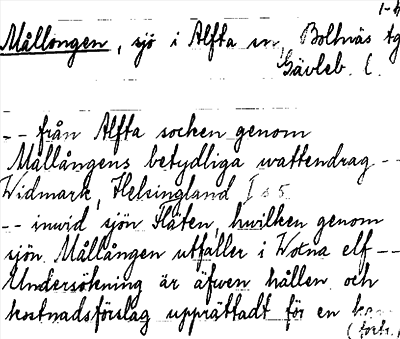 1-4
Mållongen, sjö i Alfta sn, Bollnäs tg
Gävleb. l.
-- från Alfta socken genom
Mållångens betydliga wattendrag --
Widmark, Helsingland I s 5
-- inwid sjön Flåten, hwilken genom
sjön Mållången utfaller i Wotna elf --
Undersökning är äfwen hållen och
kostnadsförslag upprättadt för en
(forts.)